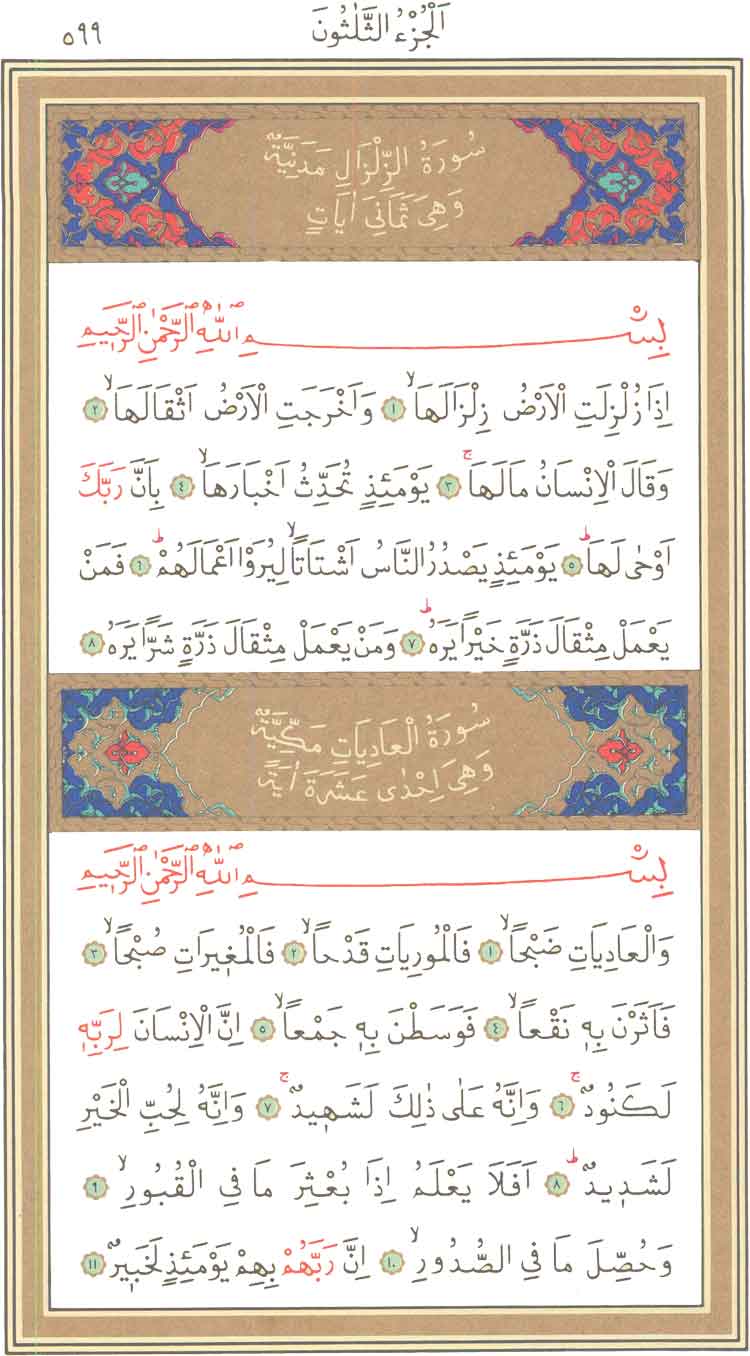 اَلْجُزْءُ الثَّلٰثُونَ ٥٩٩
سُورَةُ الزِّلْزَالِ مَدَنِيَّةٌ
وَهِيَ ثَمَانِيَ اٰيَاتٍ
بِسْمِ اللّٰهِ الرَّحْمٰنِ الرَّحٖيمِ
اِذَا زُلْزِلَتِ الْاَرْضُ زِلْزَالَهَاۙ ١ وَاَخْرَجَتِ الْاَرْضُ اَثْقَالَهَاۙ ٢
وَقَالَ الْاِنْسَانُ مَالَهَاۚ ٣ يَوْمَئِذٍ تُحَدِّثُ اَخْبَارَهَاۙ ٤ بِاَنَّ رَبَّكَ
اَوْحٰى لَهَاۜ ٥ يَوْمَئِذٍ يَصْدُرُ النَّاسُ اَشْتَاتاًۙ لِيُرَوْا اَعْمَالَهُمْۜ ٦ فَمَنْ
يَعْمَلْ مِثْقَالَ ذَرَّةٍ خَيْراً يَرَهُۜ ٧ وَمَنْ يَعْمَلْ مِثْقَالَ ذَرَّةٍ شَراًّ يَرَهُ ٨
سُورَةُ الْعَادِيَاتِ مَكِّيَّةٌ
وَهِيَ اِحْدٰى عَشَرَةَ اٰيَةً
بِسْمِ اللّٰهِ الرَّحْمٰنِ الرَّحٖيمِ
وَالْعَادِيَاتِ ضَبْحاًۙ ١ فَالْمُورِيَاتِ قَدْحاًۙ ٢ فَالْمُغٖيرَاتِ صُبْحاًۙ ٣
فَاَثَرْنَ بِهٖ نَقْعاًۙ ٤ فَوَسَطْنَ بِهٖ جَمْعاًۙ ٥ اِنَّ الْاِنْسَانَ لِرَبِّهٖ
لَكَنُودٌۚ ٦ وَاِنَّهُ عَلٰى ذٰلِكَ لَشَهٖيدٌۚ ٧ وَاِنَّهُ لِحُبِّ الْخَيْرِ
لَشَدٖيدٌۜ ٨ اَفَلَا يَعْلَمُ اِذَا بُعْثِرَ مَا فِي الْقُبُورِۙ ٩
وَحُصِّلَ مَا فِي الصُّدُورِۙ ١٠ اِنَّ رَبَّهُمْ بِهِمْ يَوْمَئِذٍ لَخَبٖيرٌ ١١